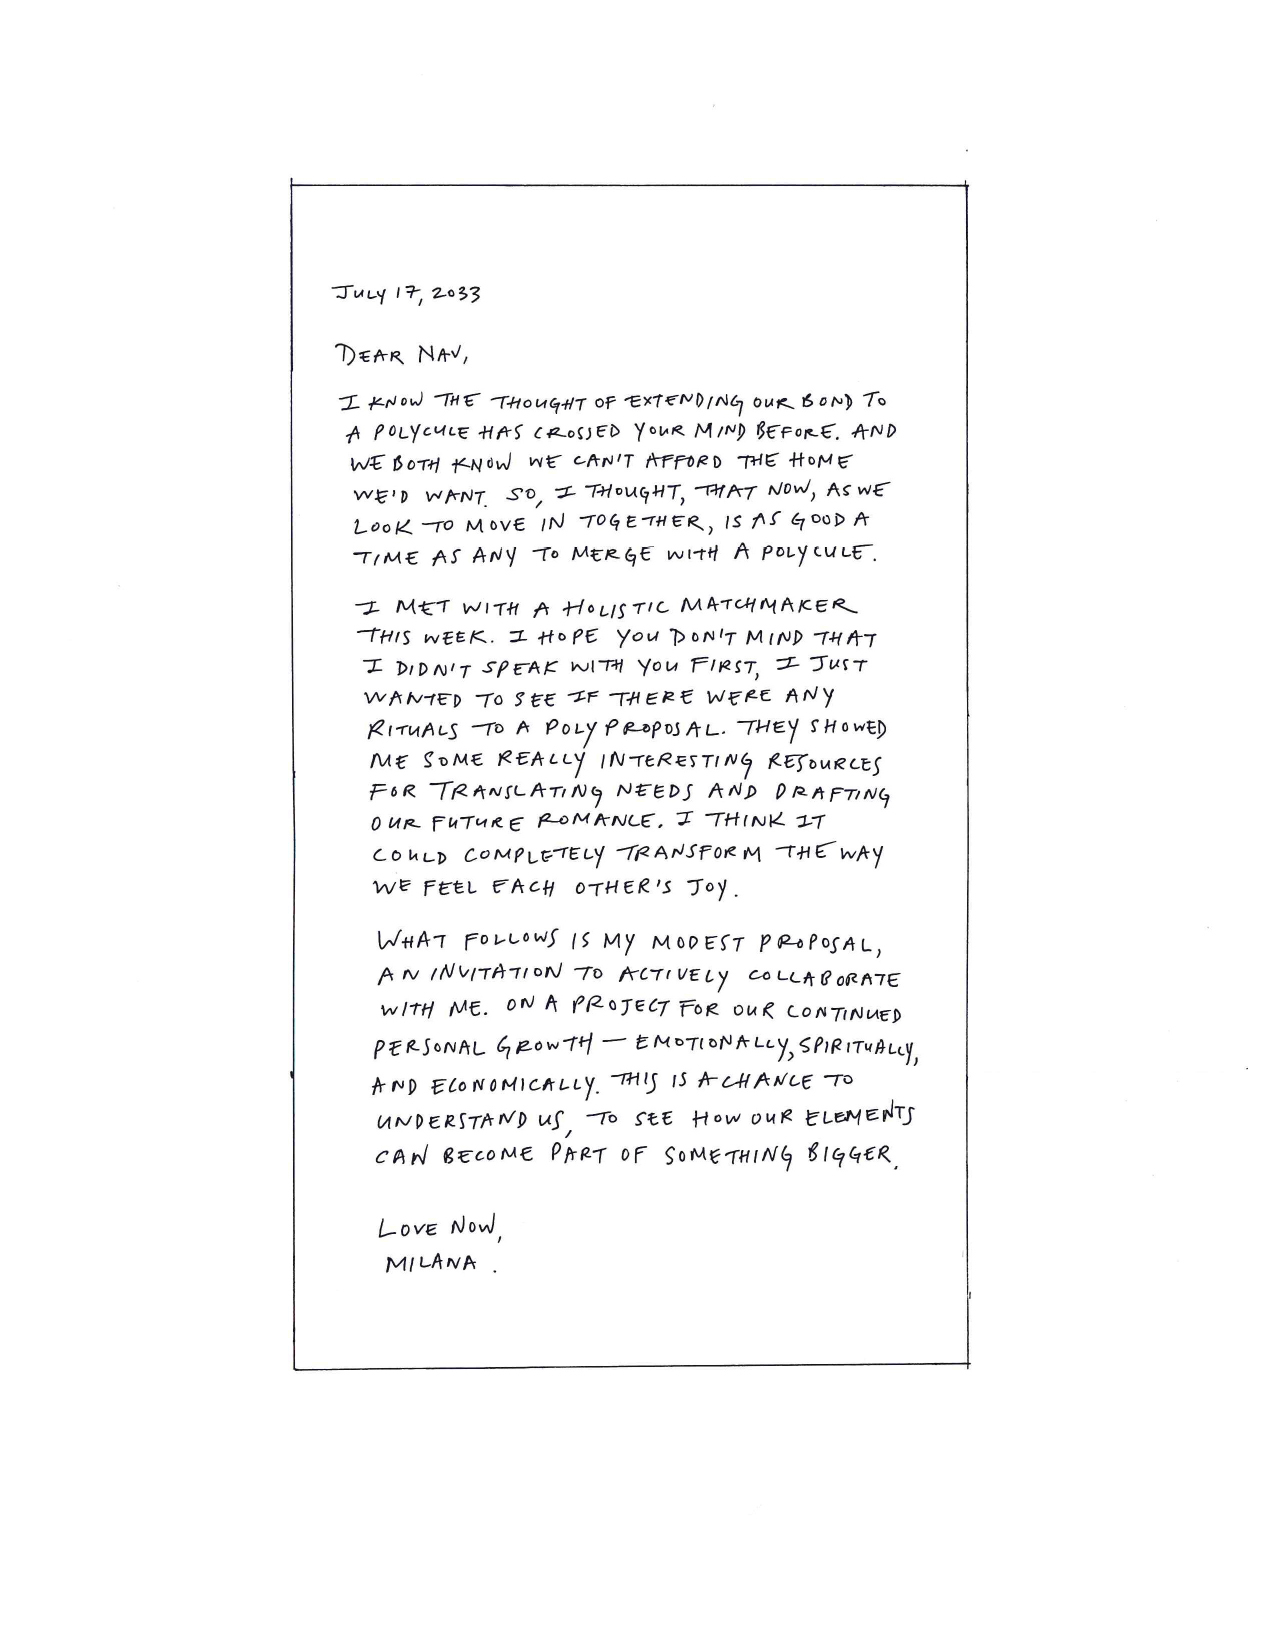 JULY 17, 2033
DEAR NAV,
I KNOW THE THOUGHT OF EXTENDING OUR BOND TO
A POLYCULE HAS CROSSED YOUR MIND BEFORE. AND
WE BOTH KNOW WE CAN'T AFFORD THE HOME
WE'D WANT. SO, I THOUGHT, THAT NOW, AS WE
LOOK TO MOVE IN TOGETHER, IS AS GOOD A
TIME AS ANY TO MERGE WITH A POLYCULE.
I MET WITH A HOLISTIC MATCHMAKER
THIS WEEK. I HOPE YOU DON'T MIND THAT
I DIDN'T SPEAK WITH YOU FIRST, I JUST
WANTED TO SEE IF THERE WERE ANY
RITUALS TO A POLY PROPOSAL. THEY SHOWED
ME SOME REALLY INTERESTING RESOURCES
FOR TRANSLATING NEEDS AND DRAFTING
OUR FUTURE ROMANCE. I THINK IT
COULD COMPLETELY TRANSFORM THE WAY
WE FEEL EACH OTHER'S JOY.
WHAT FOLLOWS IS MY MODEST PROPOSAL,
AN INVITATION TO ACTIVELY COLLABORATE
WITH ME. ON A PROJECT FOR OUR CONTINUED
PERSONAL GROWTH — EMOTIONALLY, SPIRITUALLY,
AND ECONOMICALLY. THIS IS A CHANCE TO
UNDERSTAND US, TO SEE HOW OUR ELEMENTS
CAN BECOME PART OF SOMETHING BIGGER.
LOVE NOW,
MILANA.